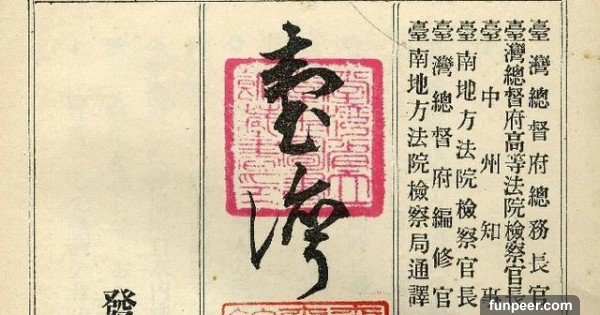 臺灣總督府總務長官
臺灣總督府高等法院檢察官長
臺中州知事
臺南地方法院檢察官長
臺灣總督府編修官
臺南地方法院檢察局通譯
臺灣
發
funpeer.com